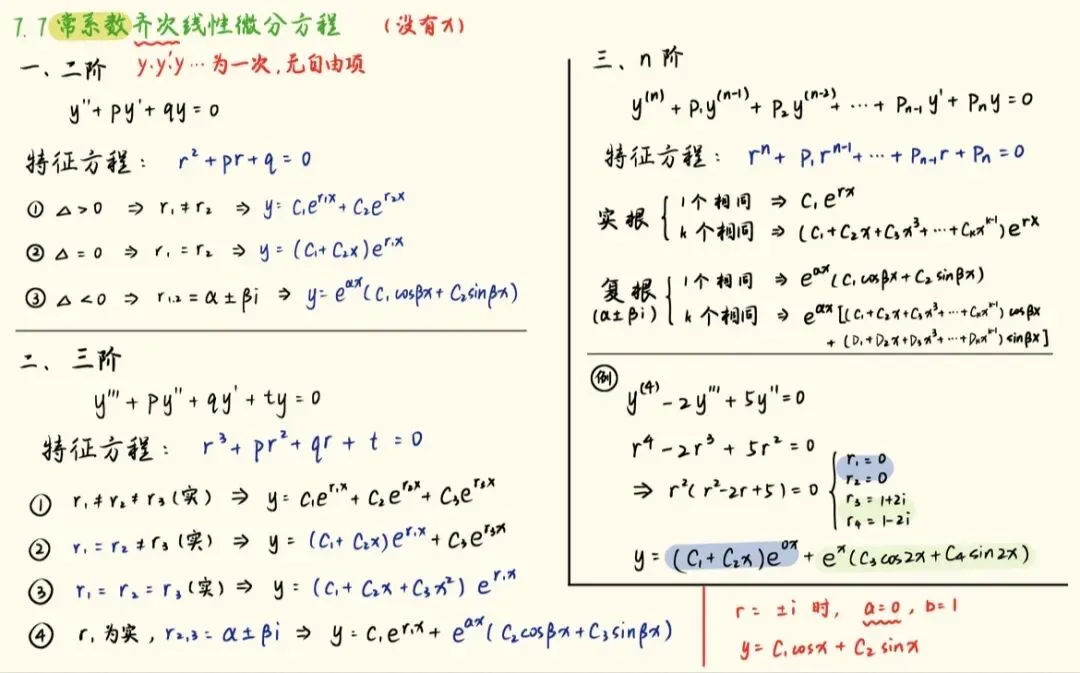 7.7 常系数齐次线性微分方程 (没有x)
一、二阶 y.y'.y… 为一次,无自由项
y''+py'+qy=0
特征方程: r²+pr+q=0
① △>0 ⇒ r₁≠r₂ ⇒ y=C₁e^{r₁x}+C₂e^{r₂x}
② △=0 ⇒ r₁=r₂ ⇒ y=(C₁+C₂x)e^{r₁x}
③ △<0 ⇒ r₁,₂=α±βi ⇒ y=e^{αx}(C₁cosβx+C₂sinβx)
二、三阶
y'''+py''+qy'+ty=0
特征方程: r³+pr²+qr+t=0
① r₁≠r₂≠r₃(实) ⇒ y=C₁e^{r₁x}+C₂e^{r₂x}+C₃e^{r₃x}
② r₁=r₂≠r₃(实) ⇒ y=(C₁+C₂x)e^{r₁x}+C₃e^{r₃x}
③ r₁=r₂=r₃(实) ⇒ y=(C₁+C₂x+C₃x²)e^{r₁x}
④ r₁为实,r₂,₃=α±βi ⇒ y=C₁e^{r₁x}+e^{αx}(C₂cosβx+C₃sinβx)
三、n阶
y^{(n)}+P₁y^{(n-1)}+P₂y^{(n-2)}+…+Pₙ₋₁y'+Pₙy=0
特征方程: rⁿ+P₁r^{n-1}+…+Pₙ₋₁r+Pₙ=0
实根 { 1个相同 ⇒ C₁e^{rx}
k个相同 ⇒ (C₁+C₂x+C₃x³+…+Cₖx^{k-1})e^{rx}
复根 { 1个相同 ⇒ e^{αx}(C₁cosβx+C₂sinβx)
(α±βi) k个相同 ⇒ e^{αx}[(C₁+C₂x+C₃x³+…+Cₖx^{k-1})cosβx
+(D₁+D₂x+D₃x³+…+Dₖx^{k-1})sinβx]
例 y^{(4)}-2y'''+5y''=0
r⁴-2r³+5r²=0
⇒ r²(r²-2r+5)=0 { r₁=0
r₂=0
r₃=1+2i
r₄=1-2i
y=(C₁+C₂x)e^{0x}+e^x(C₃cos2x+C₄sin2x)
r=±i时, a=0, b=1
y=C₁cosx+C₂sinx